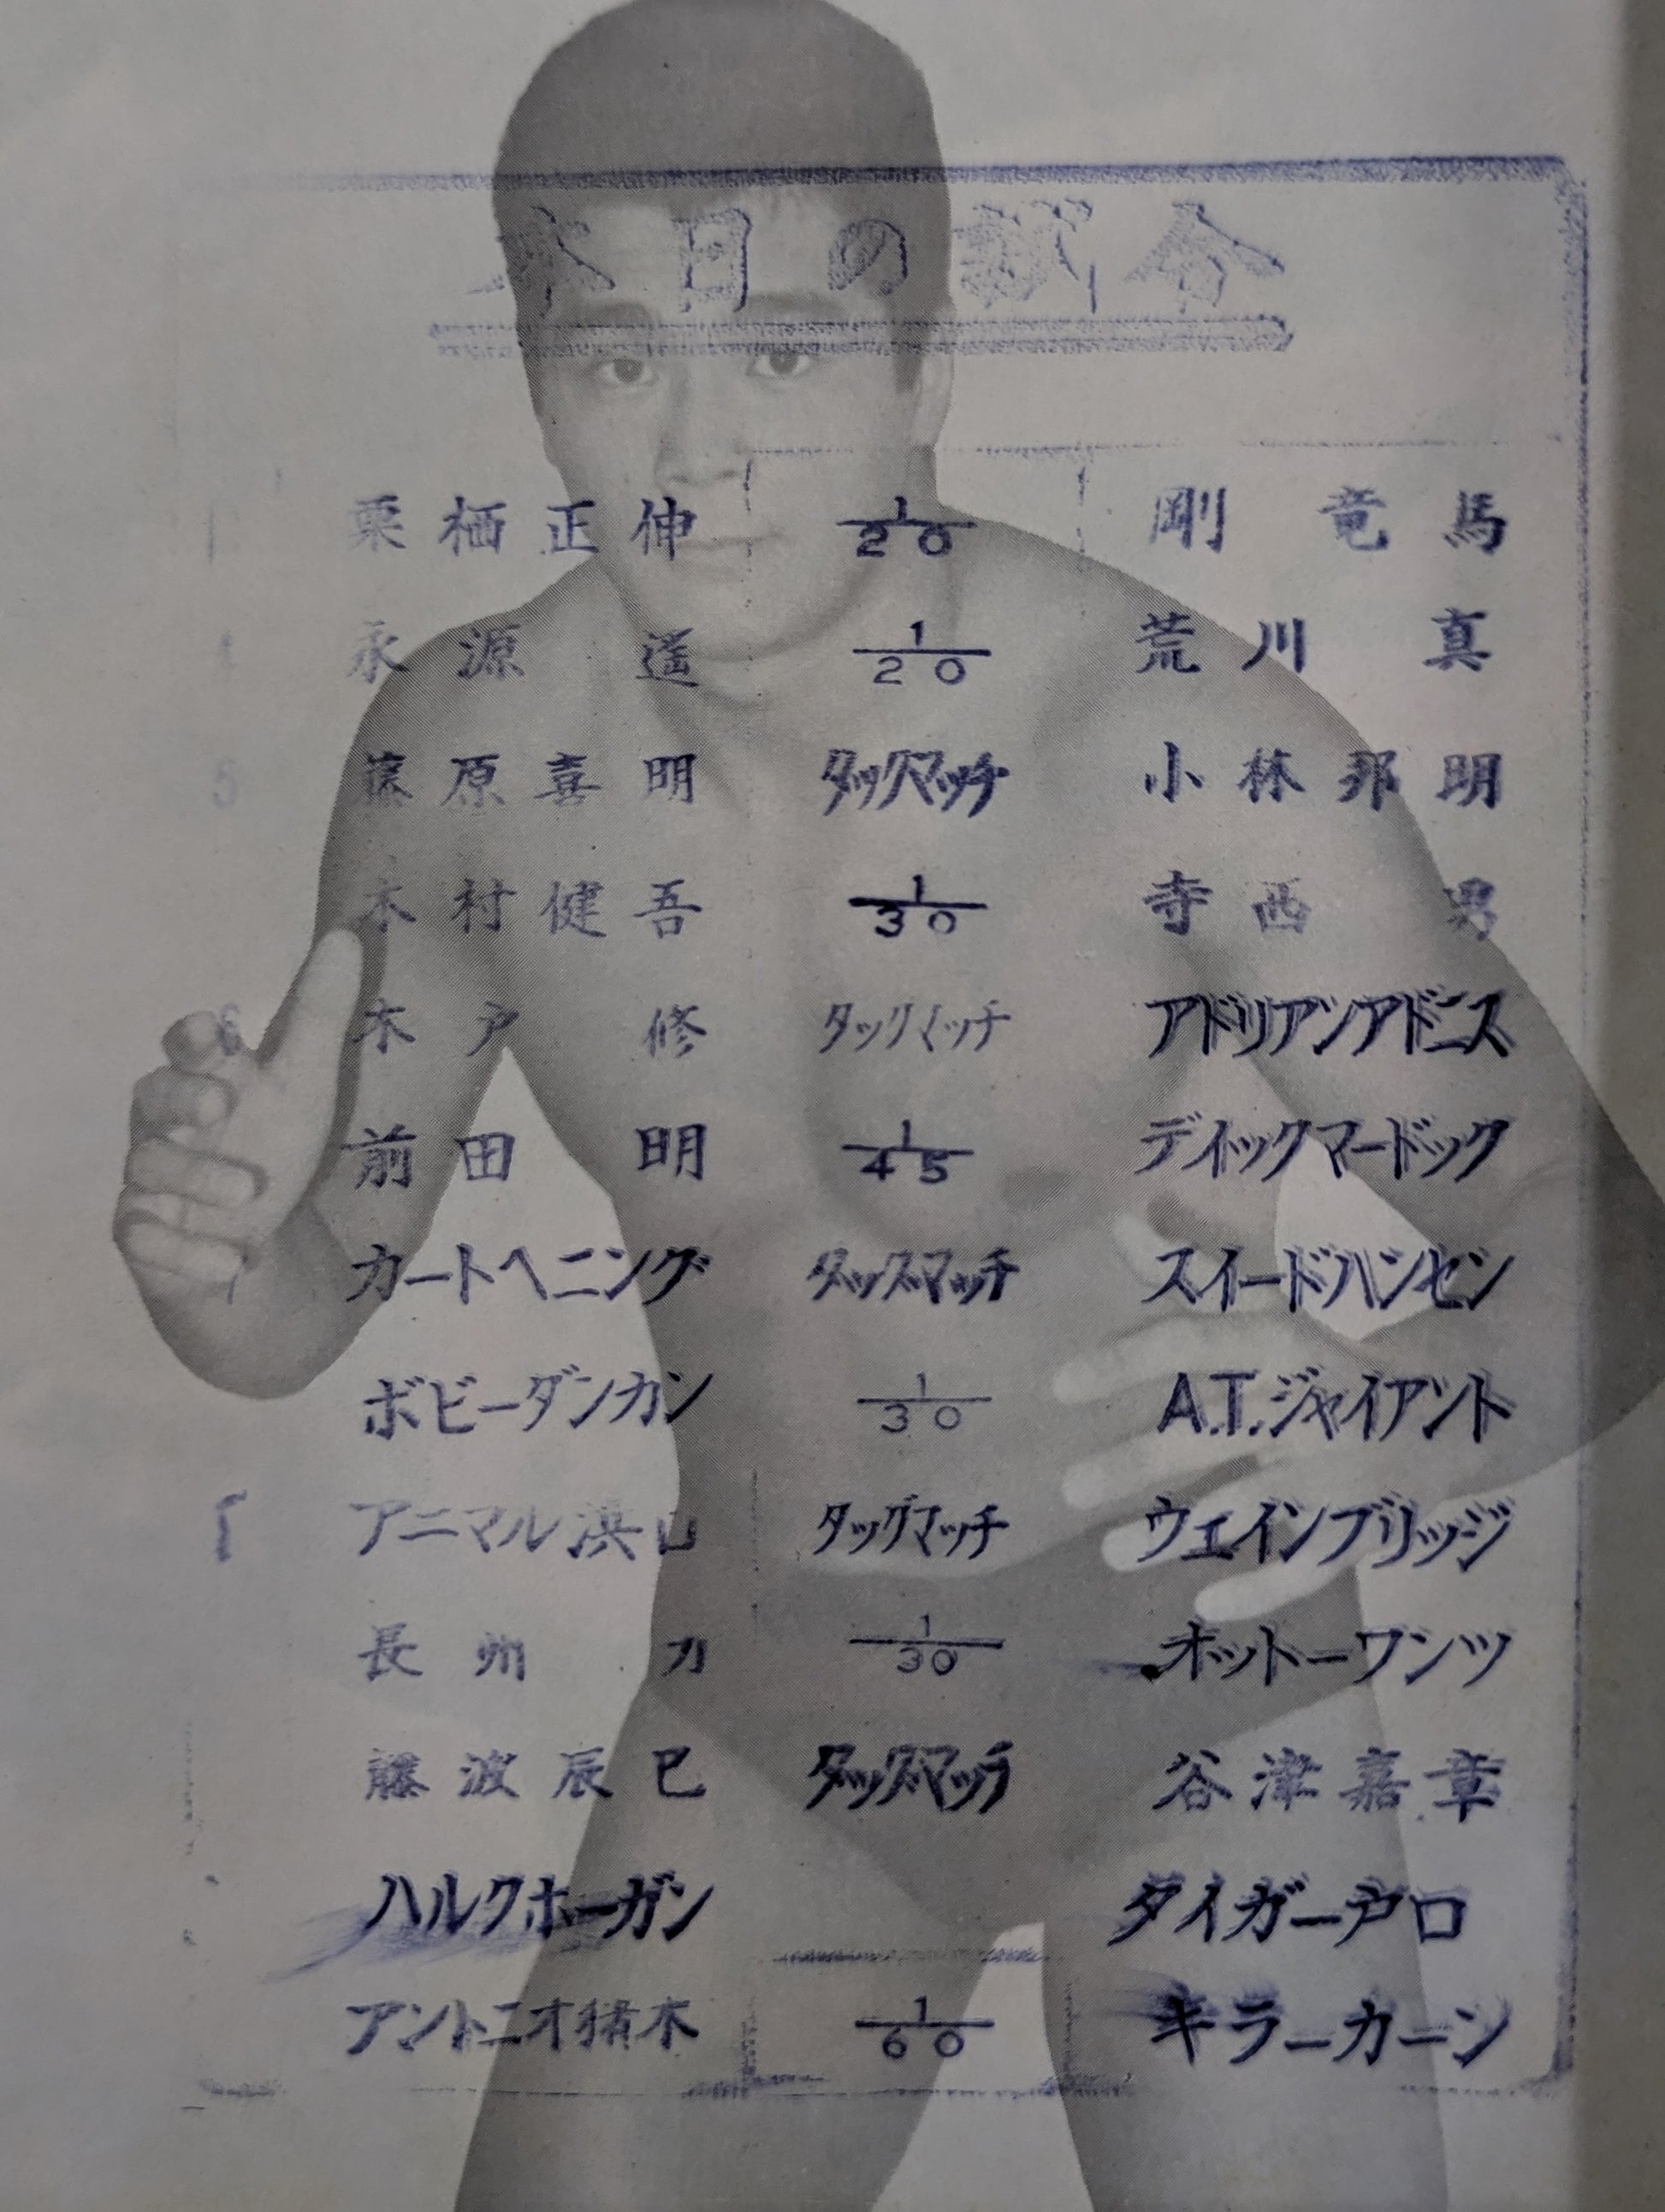 本日の試合
栗栖正伸 1/20 剛竜馬
4 永源遥 1/20 荒川真
5 藤原喜明 タッグマッチ 小林邦明
木村健吾 1/30 寺西勇
6 木戸修 タッグマッチ アドリアンアドニス
前田明 1/45 ディックマードック
7 カートヘニング タッグマッチ スイードハンセン
ボビーダンカン 1/30 A.T.ジャイアント
アニマル浜口 タッグマッチ ウエインブリッジ
長州力 1/30 オットーワンツ
藤波辰巳 タッグマッチ 谷津嘉章
ハルクホーガン タイガー戸口
アントニオ猪木 1/60 キラーカーン